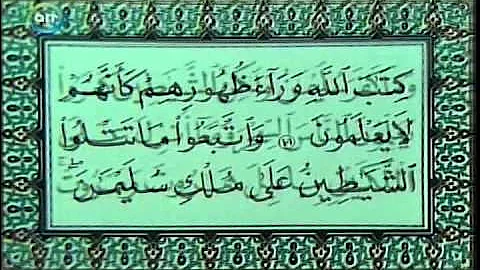 كِتَٰبَ ٱللَّهِ وَرَآءَ ظُهُورِهِمْ كَأَنَّهُمْ
لَا يَعْلَمُونَ ١٠١ وَٱتَّبَعُوا۟ مَا تَتْلُوا۟
ٱلشَّيَٰطِينُ عَلَىٰ مُلْكِ سُلَيْمَٰنَ